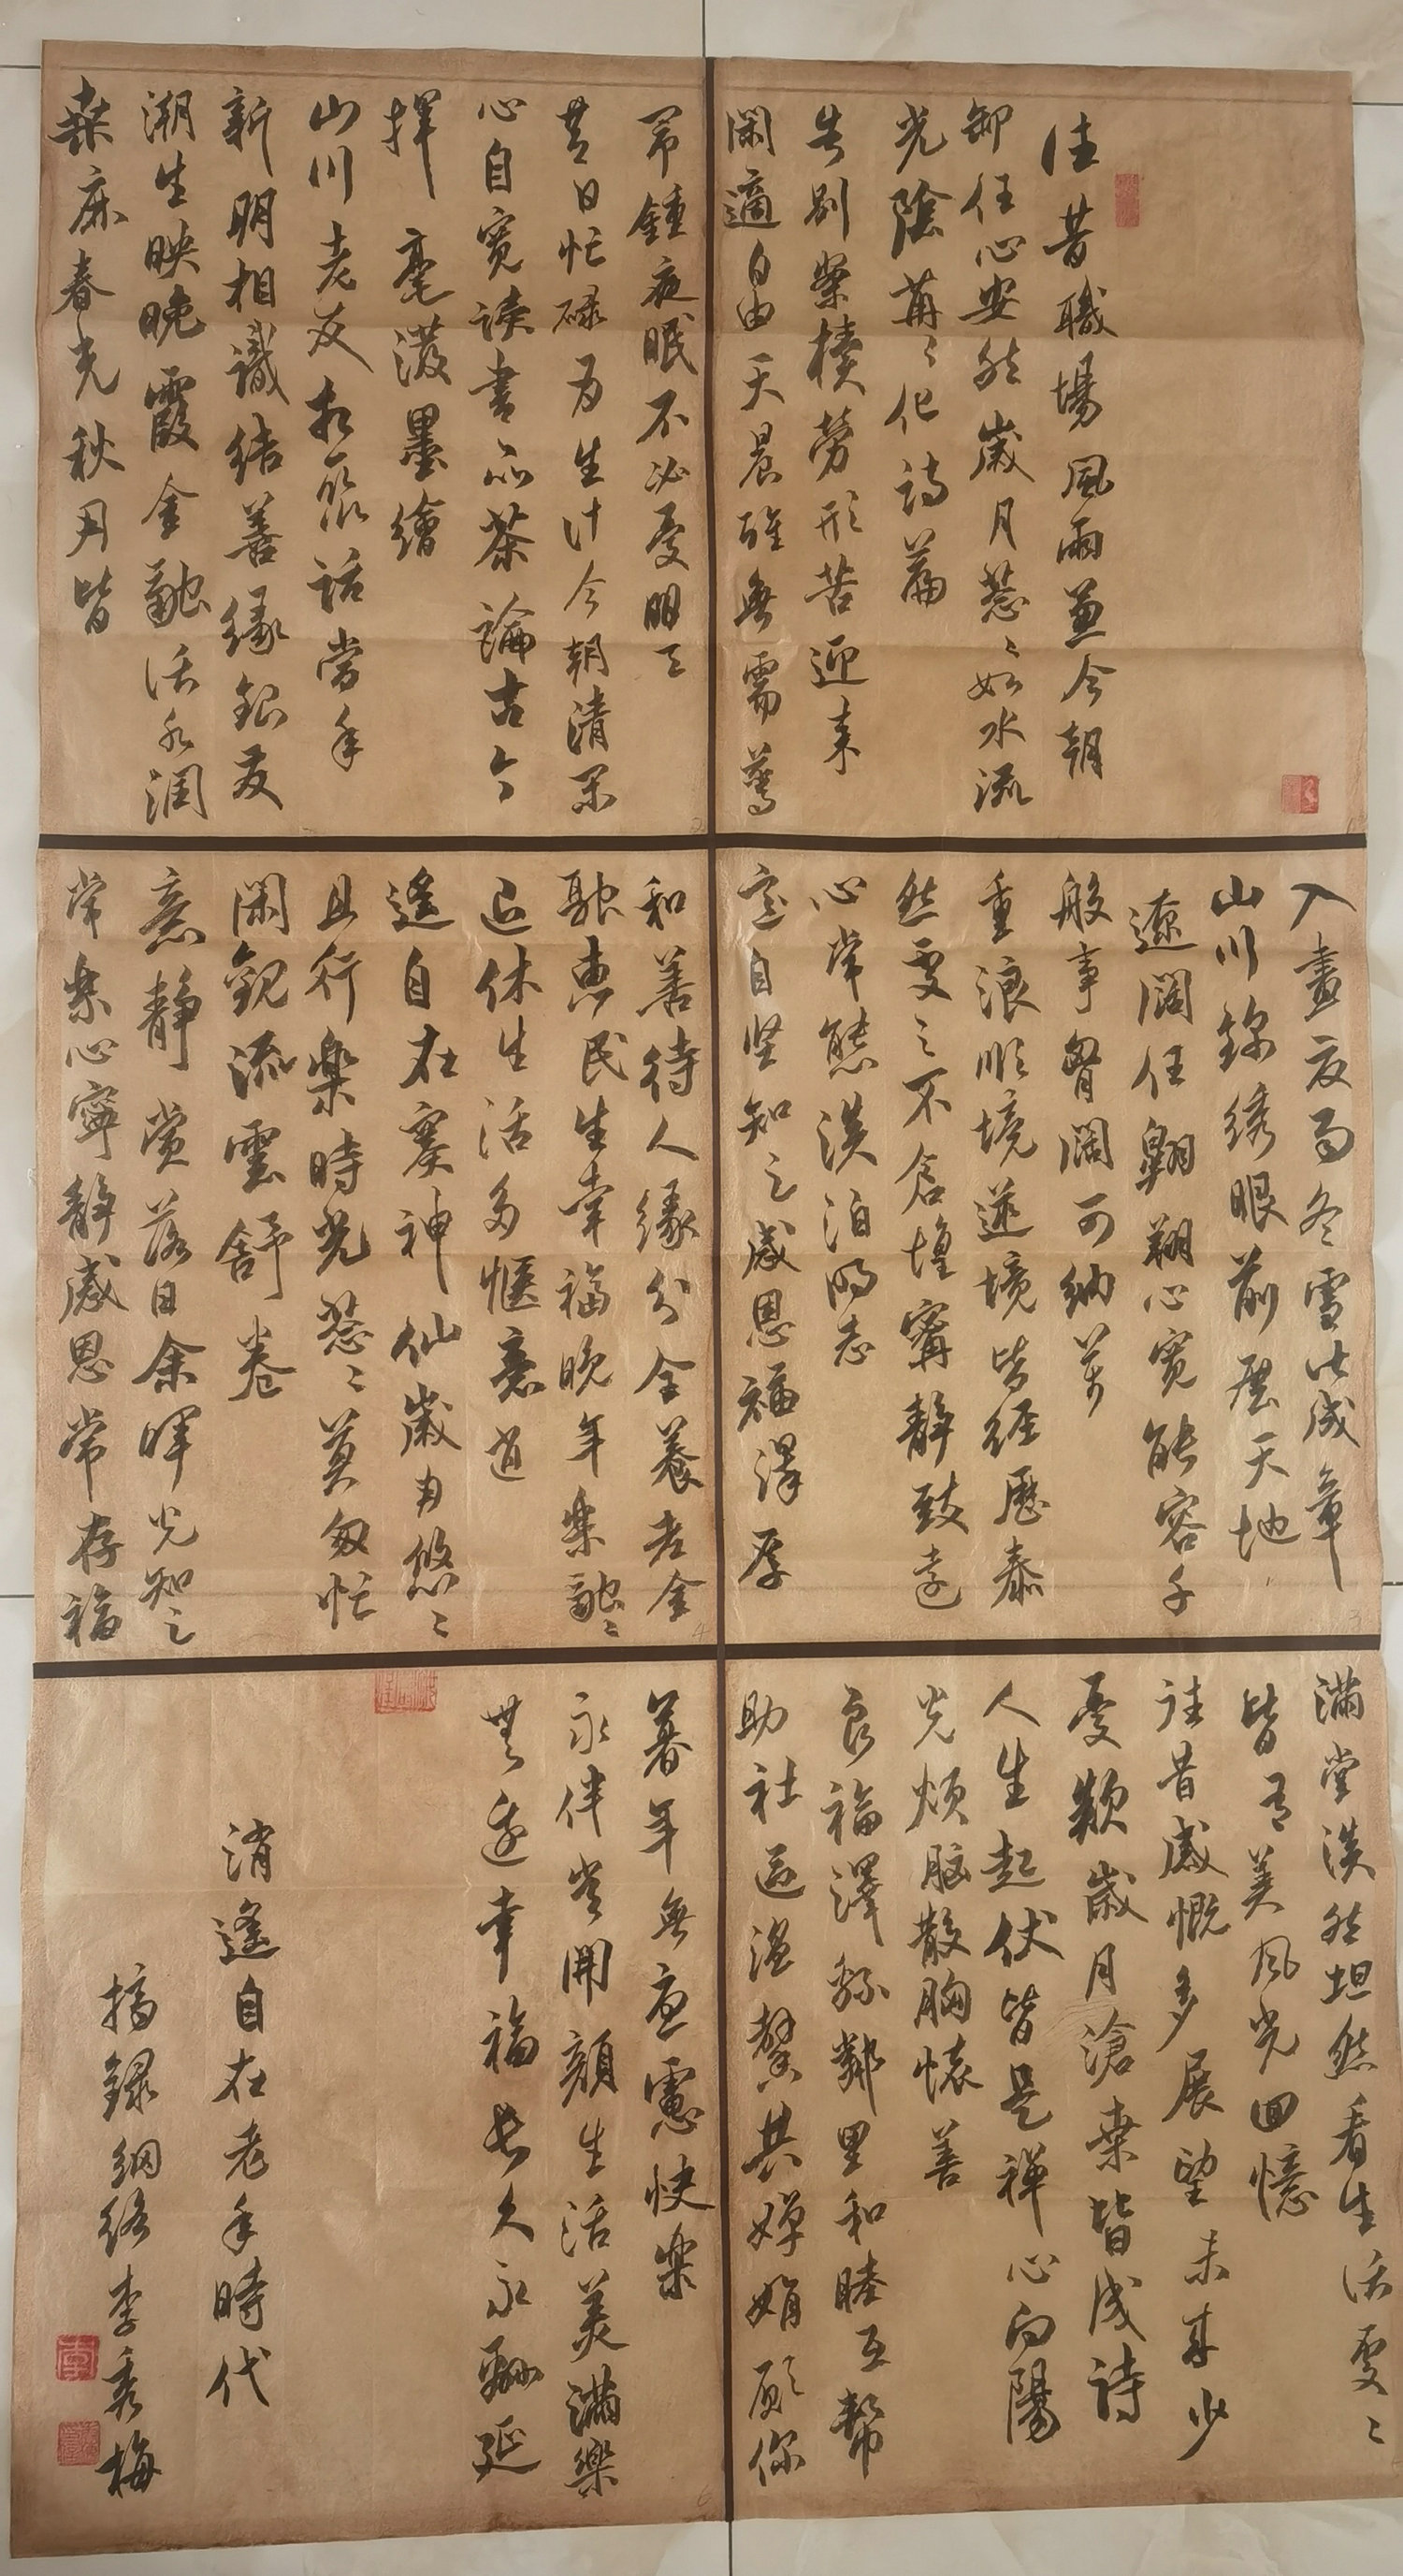 往昔職場風雨兼今朝
卸任心安然歲月悠〻如水流
光陰荏〻化詩篇
告别案牍勞形苦迎来
闲適自由天晨醒無需驚
鬧鍾夜眠不必憂明天
昔日忙碌为生计今朝清闲
心自宽读書品茶論古今
揮毫潑墨繪
山川老友相聚話當年
新朋相識結善緣銀友
潮生映晚霞金融活水润
桑麻春光秋月皆
入畫夏雨冬雪皆成章
山川錦绣眼前歷天地
遼闊任翱翔心宽能容千
般事胷阔可納萬
重浪顺境逆境皆经歷泰
然處之不倉惶寧静致远
心常態淡泊明志
意自坚知足感恩福澤厚
和善待人缘分全養老金
融惠民生幸福晚年樂融〻
退休生活多惬意逍
遥自在塞神仙歲月悠〻
且行樂時光悠〻莫匆忙
闲觀流雲舒卷
意静賞落日余暉光知足
常樂心寧静感恩常存福
满堂淡然坦然看生活處〻
皆有美风光回憶
往昔感慨多展望未来少
憂歎歲月滄桑皆成詩
人生起伏皆是禅心向陽
光烦脑散胸懷善
良福澤綿鄰里和睦互幫
助社區温馨共婵娟願你
暮年無忧慮快樂
永伴常開顏生活美满樂
無边幸福长久永翩延
消遙自在老年時代
摘録網络李秀梅